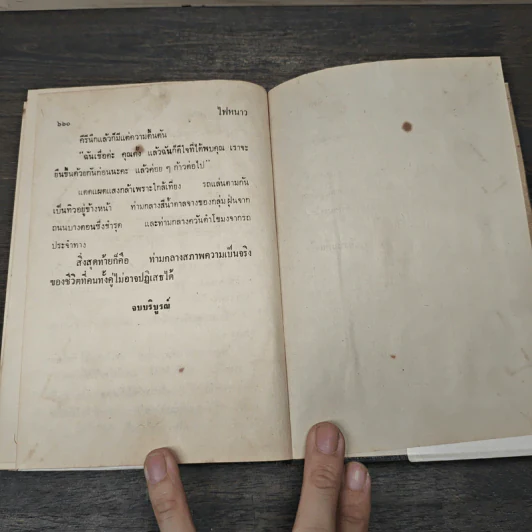 ๖๖๐ ไฟหนาว
คีรีนึกแล้วก็มีแต่ความตื้นตัน
"ฉันเชื่อค่ะ คุณคีร์ แล้วฉันก็ดีใจที่ได้พบคุณ เราจะ
ยืนขึ้นด้วยกันก่อนนะคะ แล้วค่อย ๆ ก้าวต่อไป"
แดดแผดแสงกล้าเพราะใกล้เที่ยง รถแล่นตามกัน
เป็นทิวอยู่ข้างหน้า ท่ามกลางสีน้ำตาลจางของกลุ่มฝุ่นจาก
ถนนบางตอนซึ่งชำรุด และท่ามกลางควันดำโขมงจากรถ
ประจำทาง
สิ่งสุดท้ายก็คือ ท่ามกลางสภาพความเป็นจริง
ของชีวิตที่คนทั้งคู่ไม่อาจปฏิเสธได้
จบบริบูรณ์